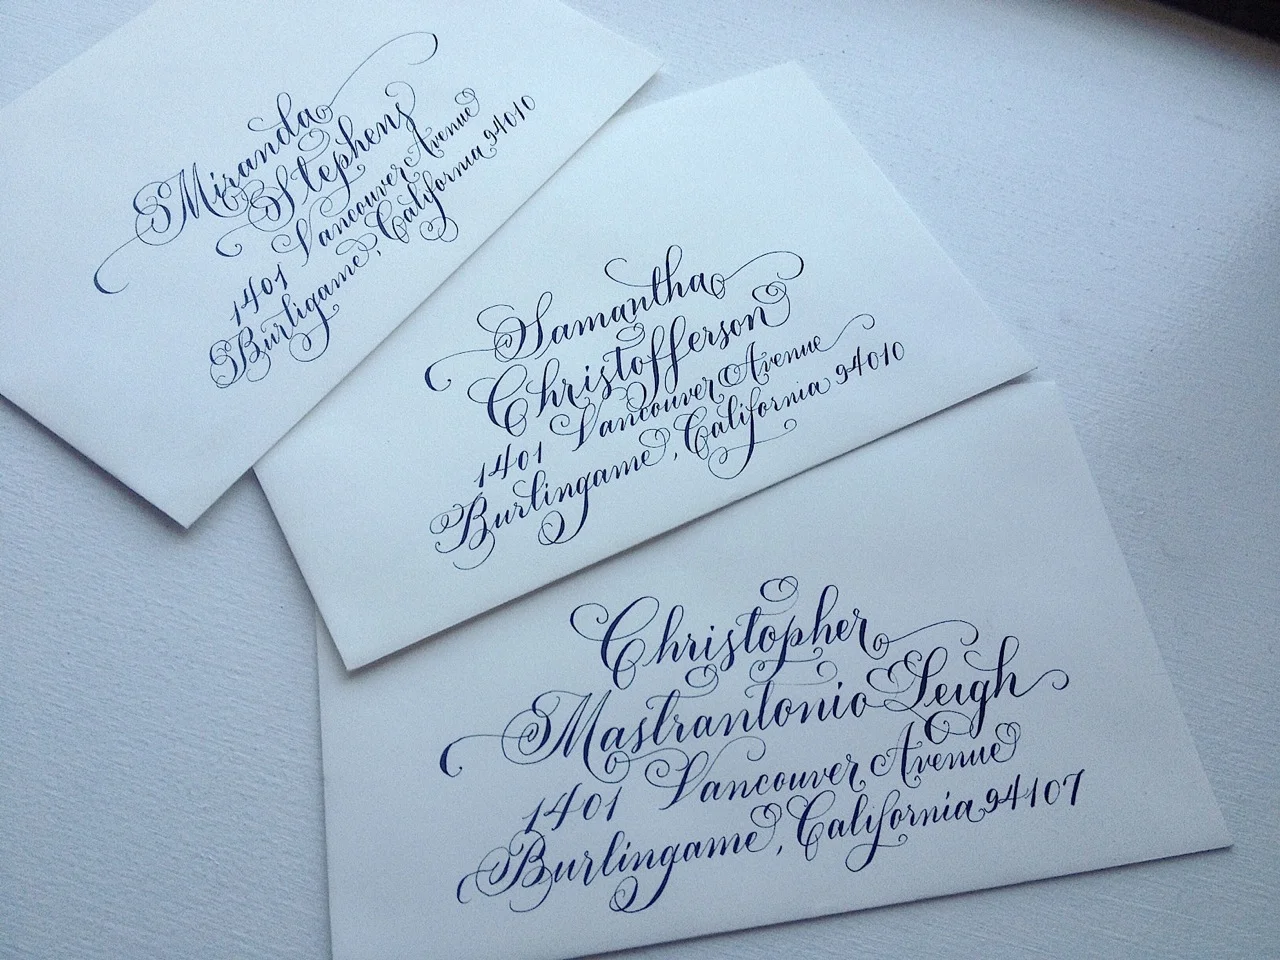 Miranda
Stephens
1401 Vancouver Avenue
Burligame, California 94010
Samantha
Christofferson
1401 Vancouver Avenue
Burlingame, California 94010
Christopher
Mastrantonio Leigh
1401 Vancouver Avenue
Burlingame, California 94107